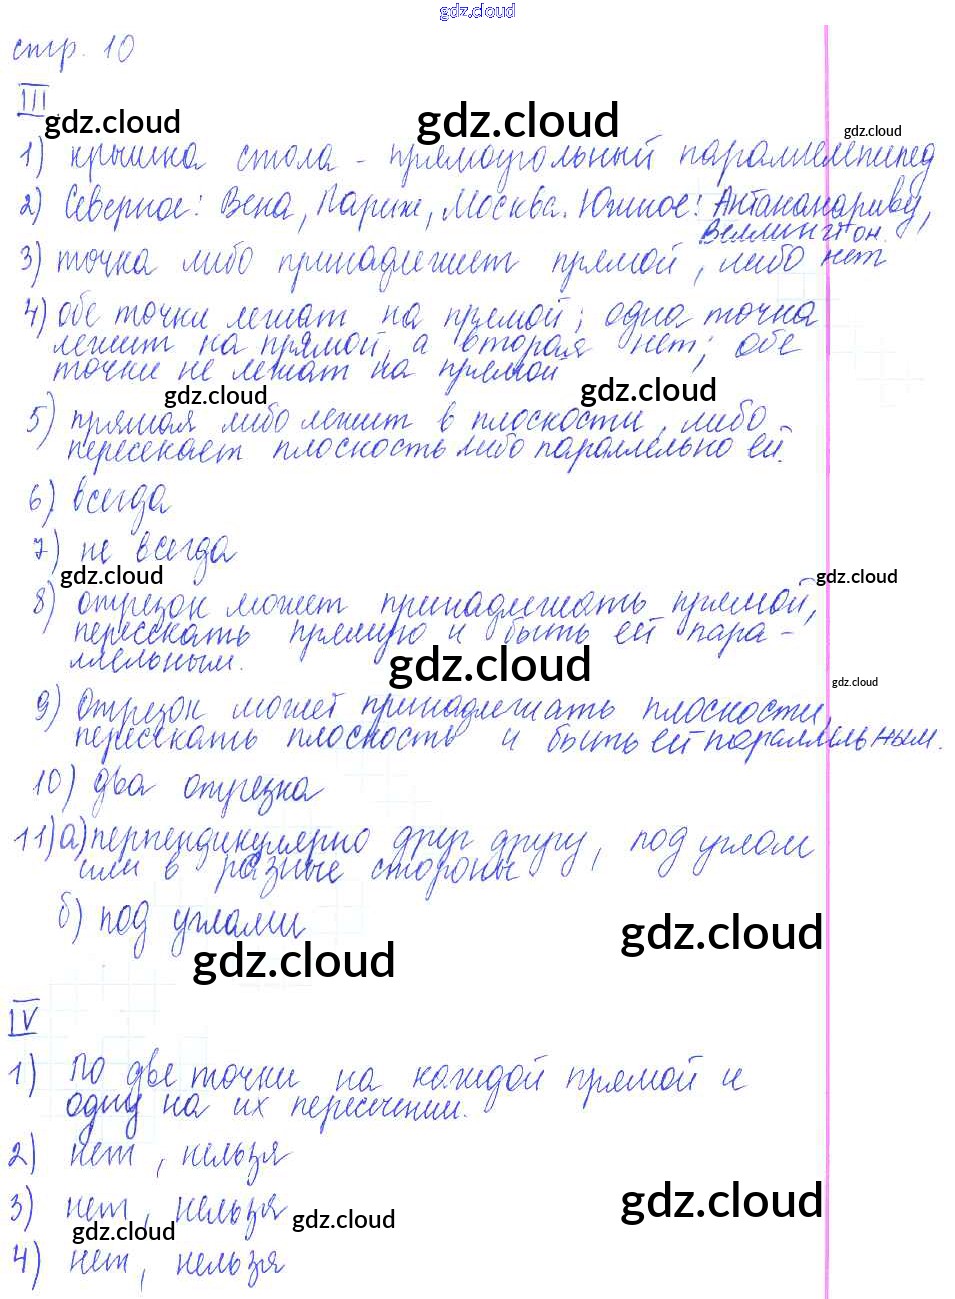 gdz.cloud
стр. 10
III
gdz.cloud gdz.cloud gdz.cloud
1) крышка стола - прямоугольный параллелепипед
2) Северное: Вена, Париж, Москва. Южное: Антананариву,
Веллингтон.
3) точка либо принадлежит прямой, либо нет
4) обе точки лежат на прямой; одна точка
лежит на прямой, а вторая нет; обе
точки не лежат на прямой
gdz.cloud gdz.cloud
5) прямая либо лежит в плоскости, либо
пересекает плоскость либо параллельно ей.
6) всегда
7) не всегда
gdz.cloud gdz.cloud
8) отрезок может принадлежать прямой,
пересекать прямую и быть ей пара-
ллельным.
gdz.cloud gdz.cloud
9) Отрезок может принадлежать плоскости,
пересекать плоскость и быть ей параллельным.
10) два отрезка
11) а) перпендикулярно друг другу, под углом
или в разные стороны
б) под углами
gdz.cloud gdz.cloud
IV
1) По две точки на каждой прямой и
одну на их пересечении.
2) нет, нельзя
3) нет, нельзя
gdz.cloud gdz.cloud gdz.cloud
4) нет, нельзя